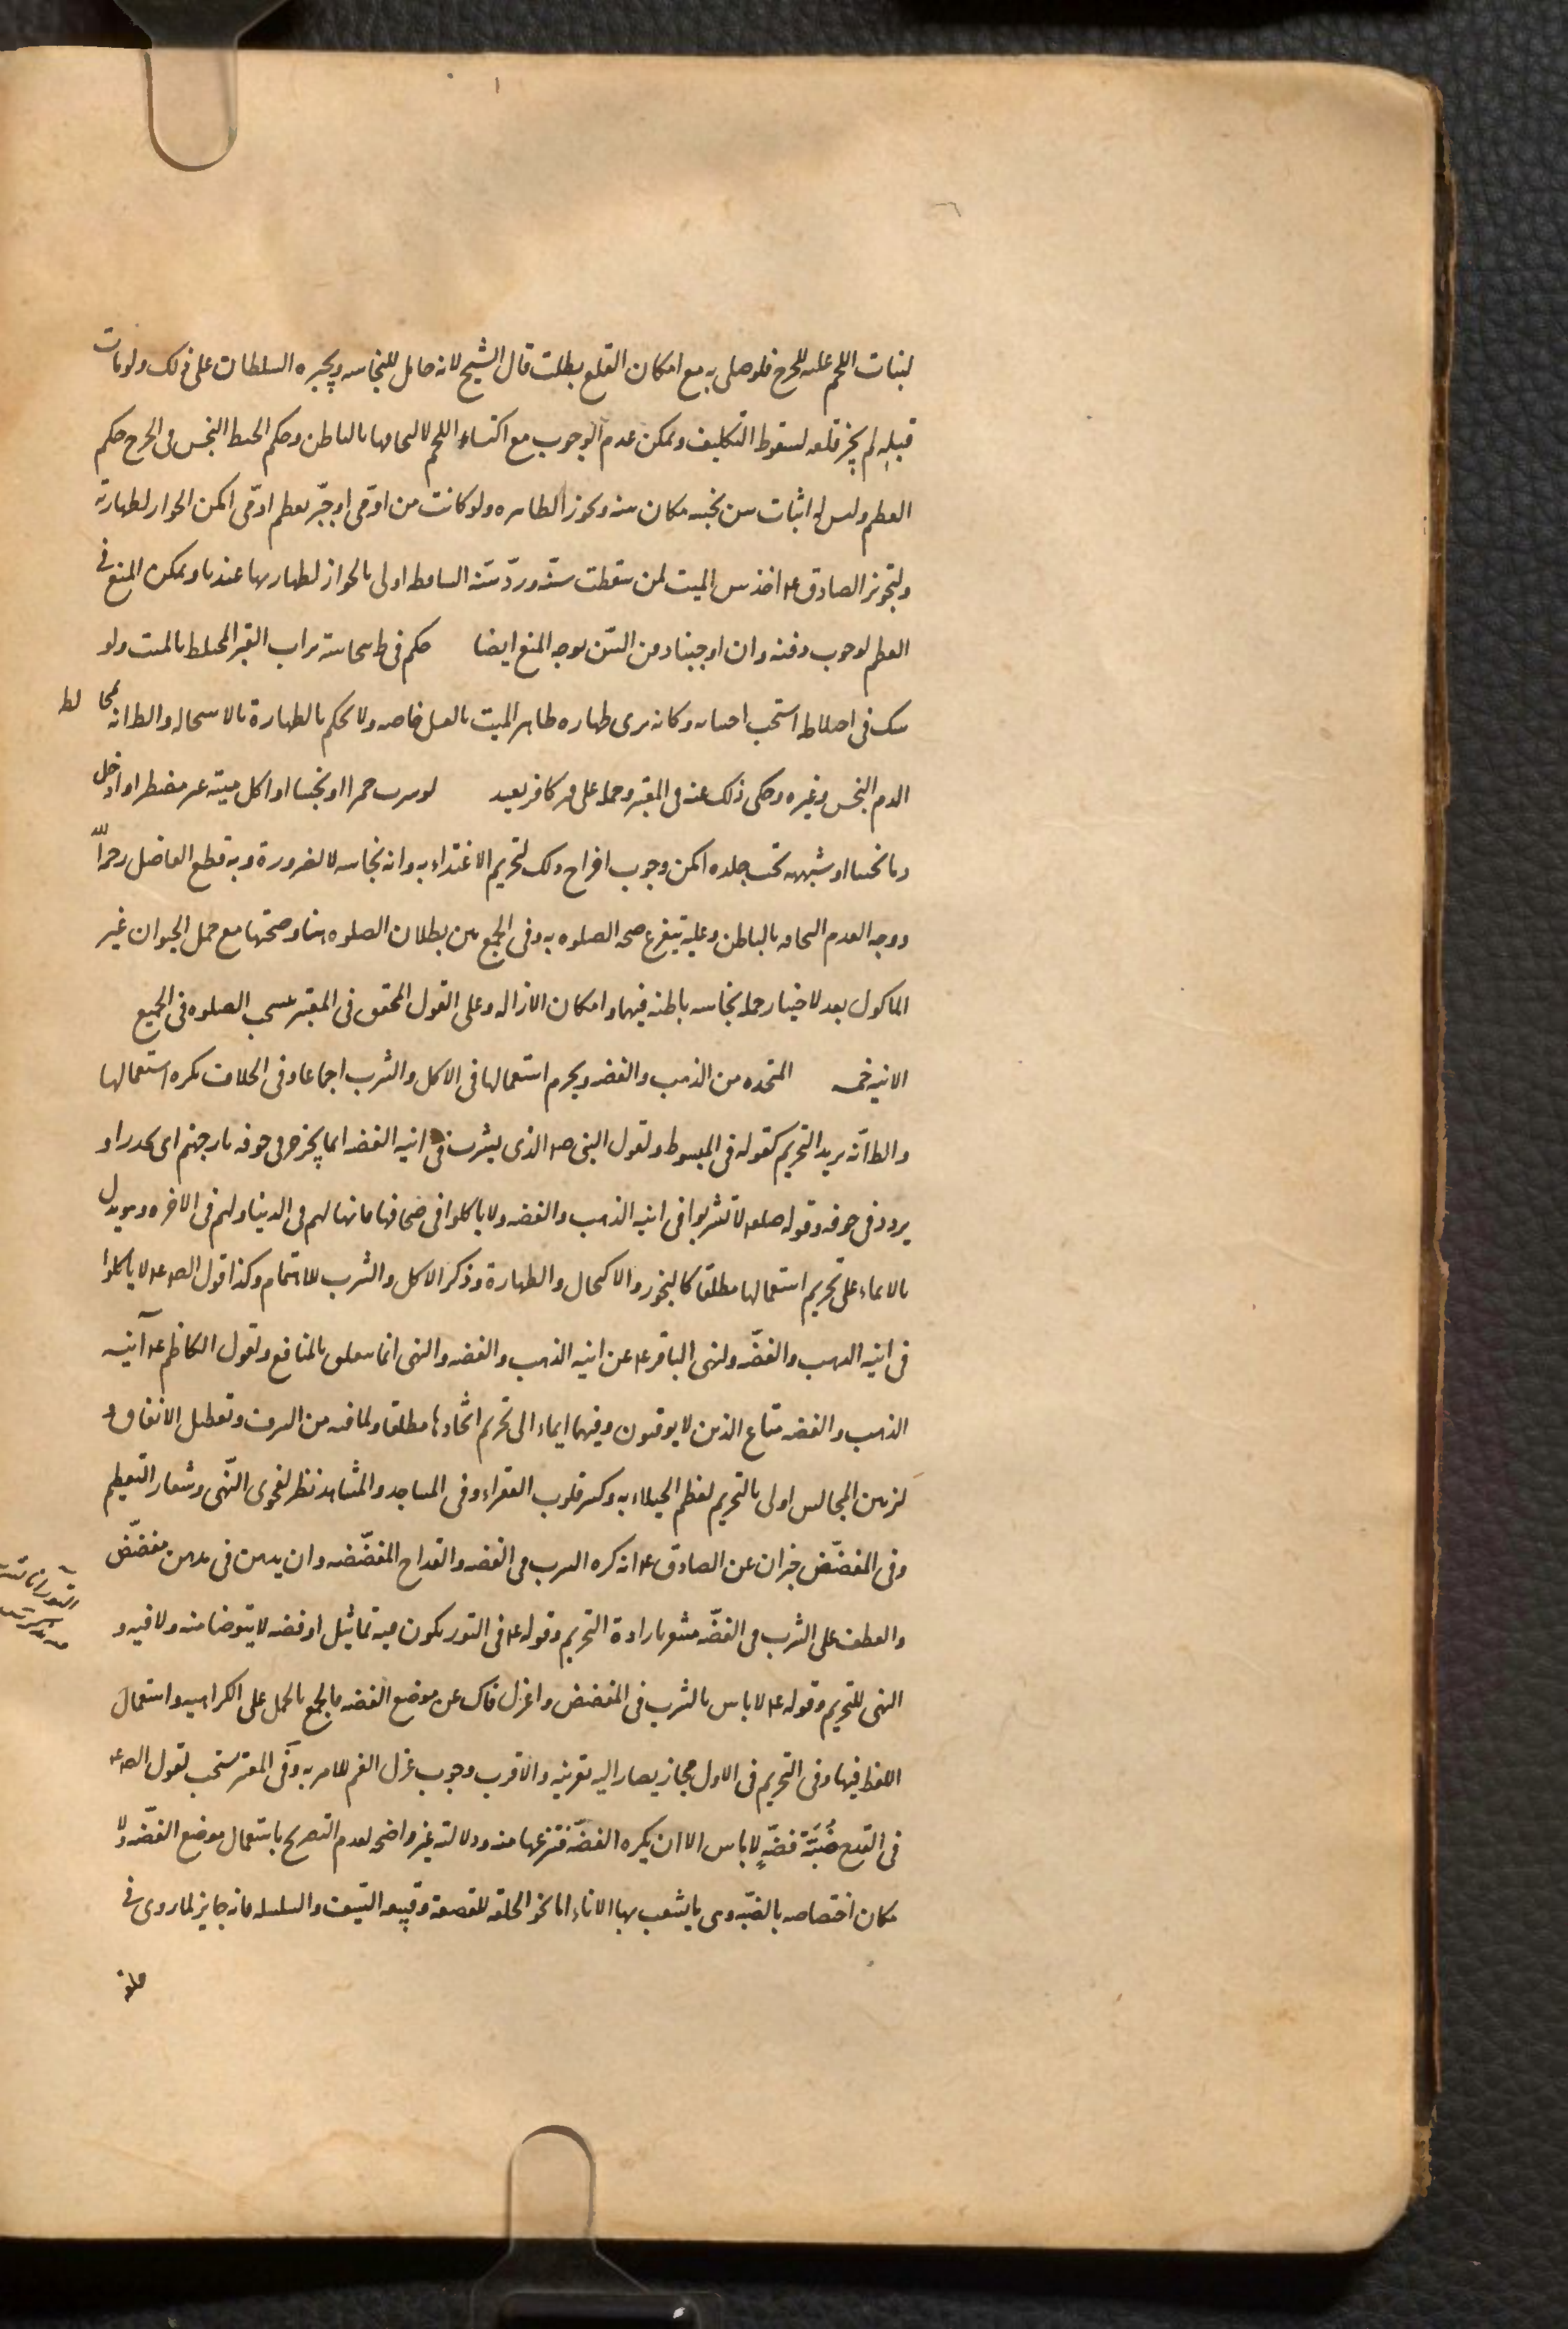 لنبات اللحم عليه للحرج فلو صلى به مع امكان القلع بطلت قال الشيخ لانه حامل للنجاسه ويجبره السلطان على ذلك ولو مات
قبله لم يجز قلعه لسقوط التكليف ويمكن عدم الوجوب مع اكتساء اللحم لالتحاقها بالباطن وحكم الخيط النجس في الجرح حكم
العظم وليس له اثبات سن نجسه مكان سنه ويجوز الطاهره ولو كانت من ادمى او جبّر بعظم ادمى امكن الجواز لطهارته
ولتجويز الصادق ع اخذ سن الميت لمن سقطت سنّه وردّ سنّه الساقطه اولى بالجواز لطهارتها عندنا ويمكن المنع في
العظم لوجوب دفنه وان اوجبنا دفن السّن توجه المنع ايضا حكم في ط بنجاسة تراب القبر المختلط بالميت ولو
شك في اختلاطه استحب اجتنابه وكانه يرى طهاره ظاهر الميت بالغسل خاصه ولا يحكم بالطهارة بالاستحاله والظ انه لمخالطه
الدم النجس وغيره وحكى ذلك عنه في المعتبر وحمله على قبر كافر بعيد لو شرب خمرا او نجسا او اكل ميته غير مضطر او ادخل
دما نجسا او شبهه تحت جلده امكن وجوب اخراج ذلك لتحريم الاغتذاء به وانه نجاسه لا لضرورة وبه قطع الفاضل رحمه الله
ووجه العدم التحاقه بالباطن وعليه يتفرع صحه الصلوه به وفى الجمع بين بطلان الصلوه هنا وصحتها مع حمل الحيوان غير
الماكول بعد لاختيار حمله نجاسه باطنه فيهما وامكان الازاله وعلى القول المحقق في المعتبر يستحب الصلوه فى الجميع
الانيه خمسه المتخذه من الذهب والفضه ويحرم استعمالها فى الاكل والشرب اجماعا وفى الخلاف يكره استعمالها
والظ انّه يريد التحريم كقوله فى المبسوط ولقول النبى ص الذى يشرب فى انيه الفضه انما يجرجر في جوفه نار جهنم اى يحدر او
يردد فى جوفه وقوله صلعم لا تشربوا فى انيه الذهب والفضه ولا تاكلوا فى صحافها فانها لهم فى الدنيا ولهم فى الاخره وهو يدل
بالايماء على تحريم استعمالها مطلقا كالبخور والاكتحال والطهارة وذكر الاكل والشرب للاهتمام وكذا قول الص ع لا تاكلوا
فى انيه الذهب والفضّه ولنهى الباقر ع عن انيه الذهب والفضه والنهى انما يتعلق بالمنافع ولقول الكاظم ع آنيه
الذهب والفضه متاع الذين لا يوقنون وفيهما ايماء الى تحريم اتخاذها مطلقا ولما فيه من السرف وتعطيل الانفاق و
تزيين المجالس اولى بالتحريم لعظم الخيلاء به وكسر قلوب الفقراء وفى المساجد والمشاهد نظر لفحوى النّهى وشعار التعظيم
وفى المفضّض خبران عن الصادق ع انه كره الشرب في الفضه والقداح المفضّضه وان يدهن فى مدهن مفضّض
والعطف على الشرب في الفضّه مشعر بارادة التحريم وقوله ع فى التور يكون فيه تماثيل او فضه لا يتوضا منه ولا فيه و
النهى للتحريم وقوله ع لا باس بالشرب فى المفضض واعزل فاك عن موضع الفضه فالجمع بالحمل على الكراهيه واستعمال
اللفظ فيها وفى التحريم فى الاول مجاز يصار اليه بقرينه والاقرب وجوب عزل الفم للامر به وفى المعتبر يستحب لقول الص ع
فى القدح ضُبَّة فضّةٍ لا باس الا ان يكره الفضّه فتنزعها منه ودلالته غير واضحه لعدم التصريح باستعمال موضع الفضّه ولا
مكان اختصاصه بالضبّه وهى ما يشعب بها الاناء اما نحو الحلقه للقصعة وقبيعه السّيف والسلسله فانه جايز لما روى فى
حلقه